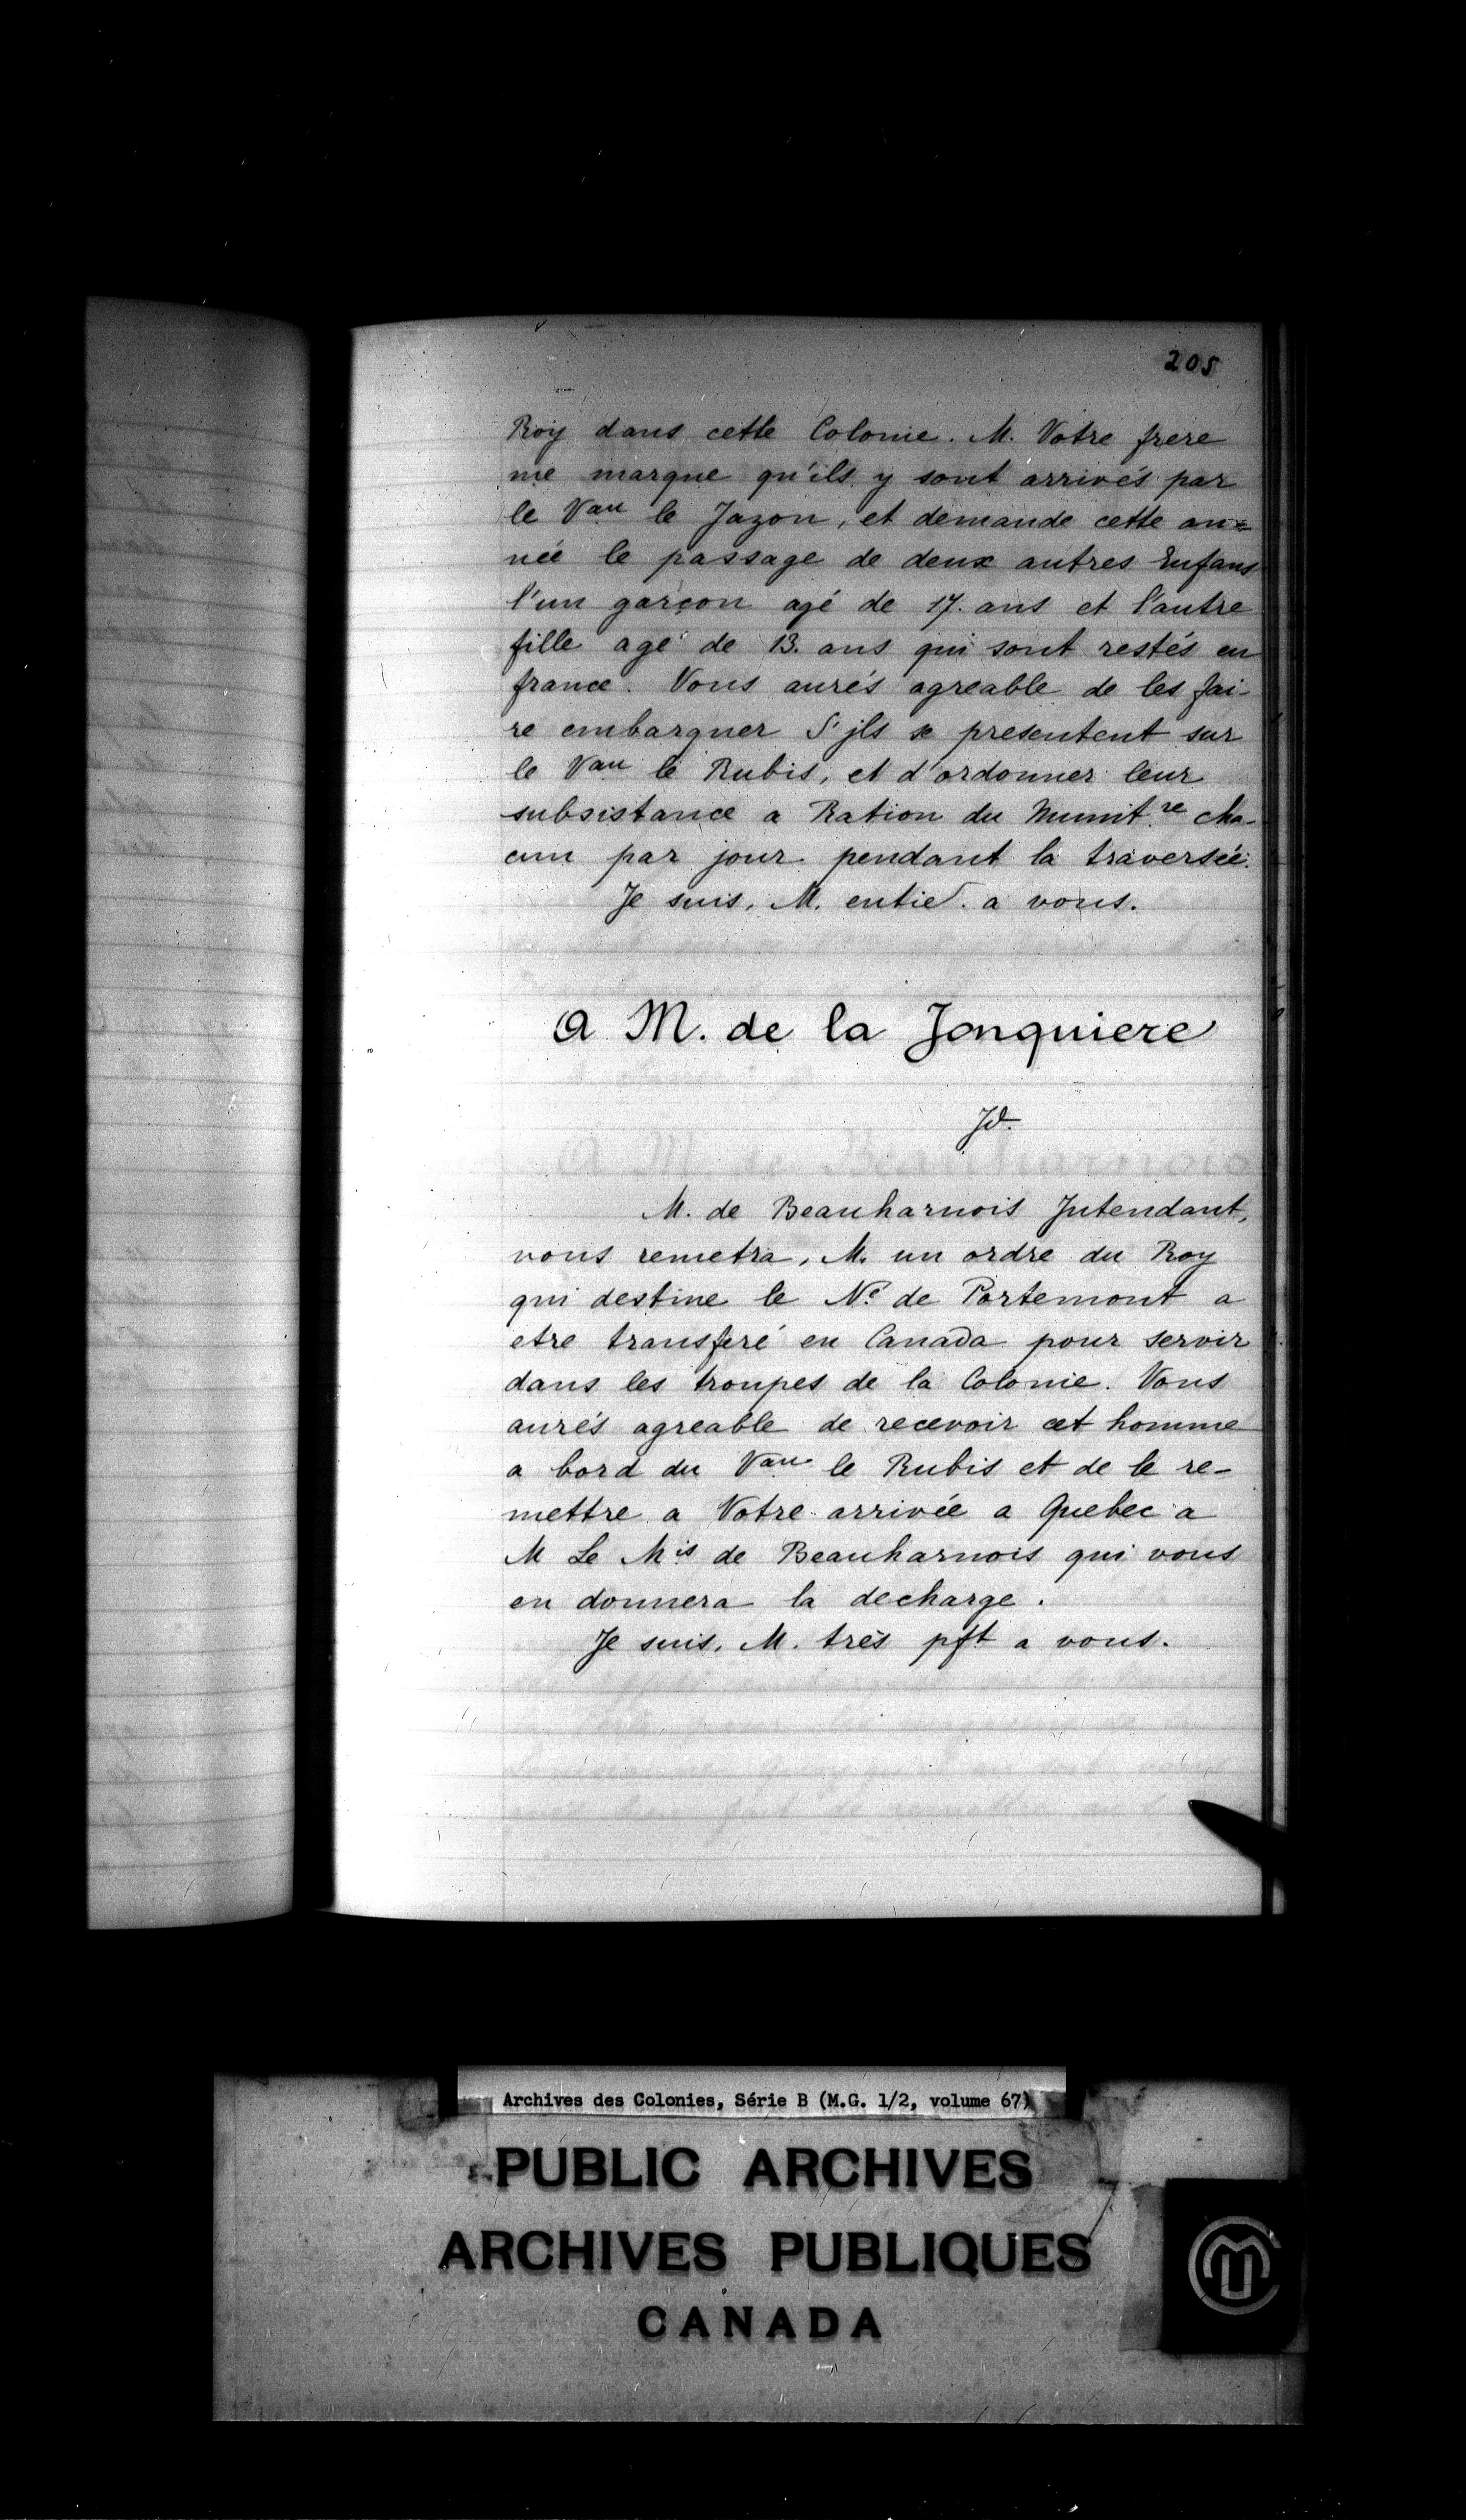 205
Roy dans cette Colonie. M. Votre frere
me marque qu'ils y sont arrivés par
le Vau le Jazon, et demande cette an=
née le passage de deux autres Enfans
l'un garçon agé de 17. ans et l'autre
fille agé de 13. ans qui sont restés en
france. Vous aurés agreable de les fai-
re embarquer S'jls se presentent sur
le Vau le Rubis, et d'ordonner leur
subsistance a Ration du Munit.re cha-
cun par jour pendant la traversée.
Je suis, M. entier. a vous.
A M. de la Jonquiere
Jd.
M. de Beauharnois Jntendant,
vous remetra, M. un ordre du Roy
qui destine le Né de Portemont a
etre transferé en Canada pour servir
dans les troupes de la Colonie. Vous
aurés agreable de recevoir cet homme
a bord du Vau le Rubis et de le re-
mettre a Votre arrivée a Quebec a
M Le Mis de Beauharnois qui vous
en donnera la decharge.
Je suis, M. très pft a vous.
Archives des Colonies, Série B (M.G. 1/2, volume 67)
PUBLIC ARCHIVES
ARCHIVES PUBLIQUES
CANADA